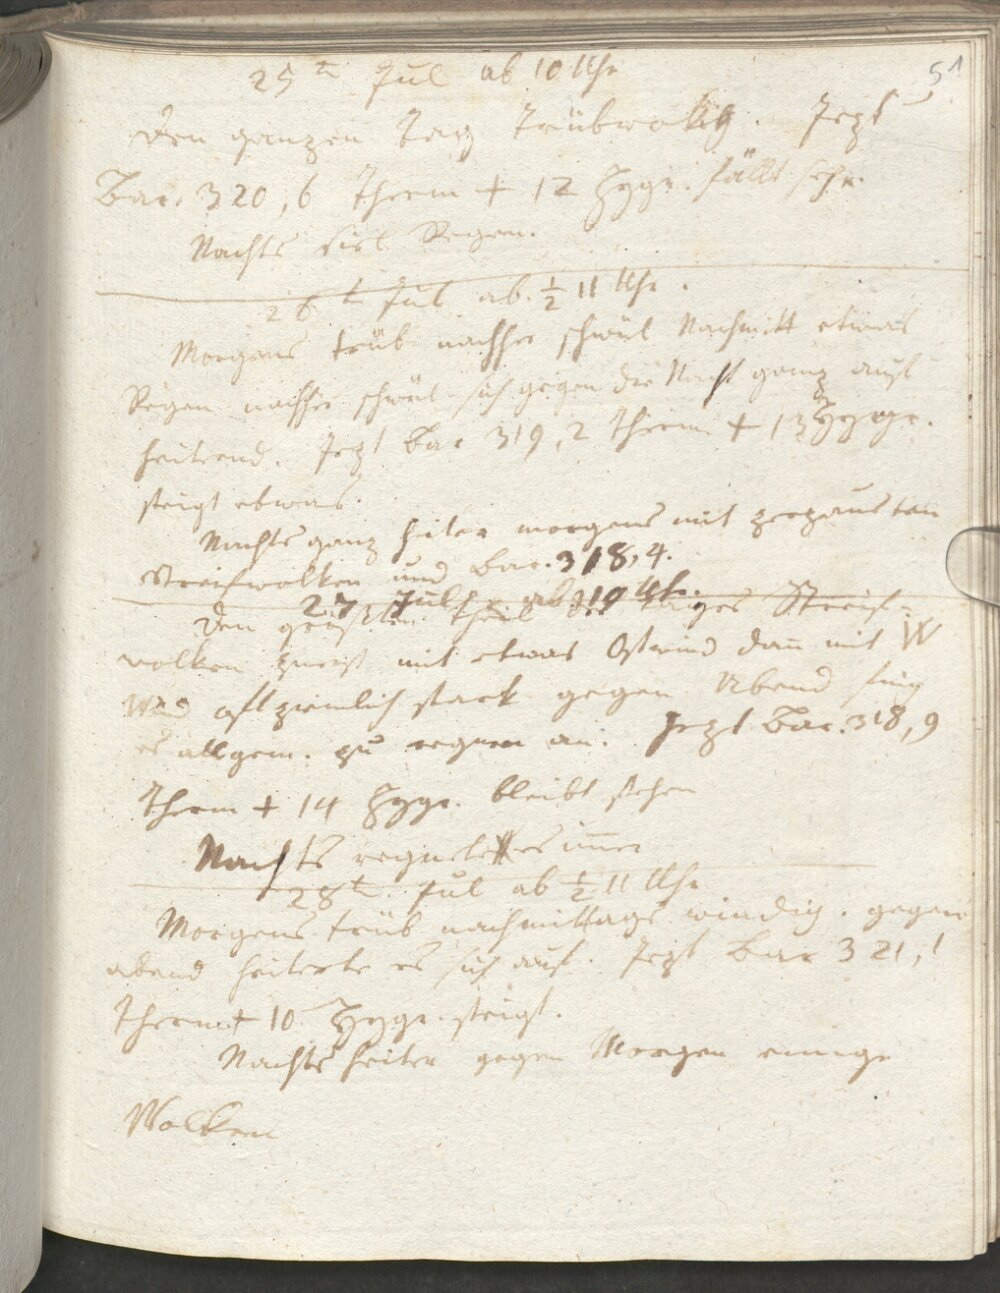 51
25t Jul ab 10 Uhr
Den ganzen Tag Trübwolkig. Jezt
Bar. 320,6 Therm + 12 Hygr. fällt sehr.
Nachts viel Regen.
26t Jul ab. ½ 11 Uhr.
Morgens trüb nachher schwül Nachmitt etwas
Regen nachher schwül sich gegen die Nacht ganz auf
heiterend. Jezt Bar 319,2 Therm + 13 Hygr.
steigt etwas.
Nachts ganz heiter morgens mit zerzausten
Streifwolken und Bar. 318,4.
27 Jul ab 10 Uhr.
Den größten Theil des Tages Streif-
wolken zuerst mit etwas Ostwind dan̄ mit W
Wind oft ziemlich stark gegen Abend fing
es allgem. zu regnen an. Jezt Bar. 318,9
Therm + 14 Hygr. bleibt stehen
Nachts regnete es im̄er
28t Jul ab ½ 11 Uhr
Morgens trüb nachmittags windig. gegen
abend heiterte es sich auf. Jezt Bar 321,1
Therm + 10 Hygr. steigt.
Nachts heiter gegen Morgen einige
Wolken